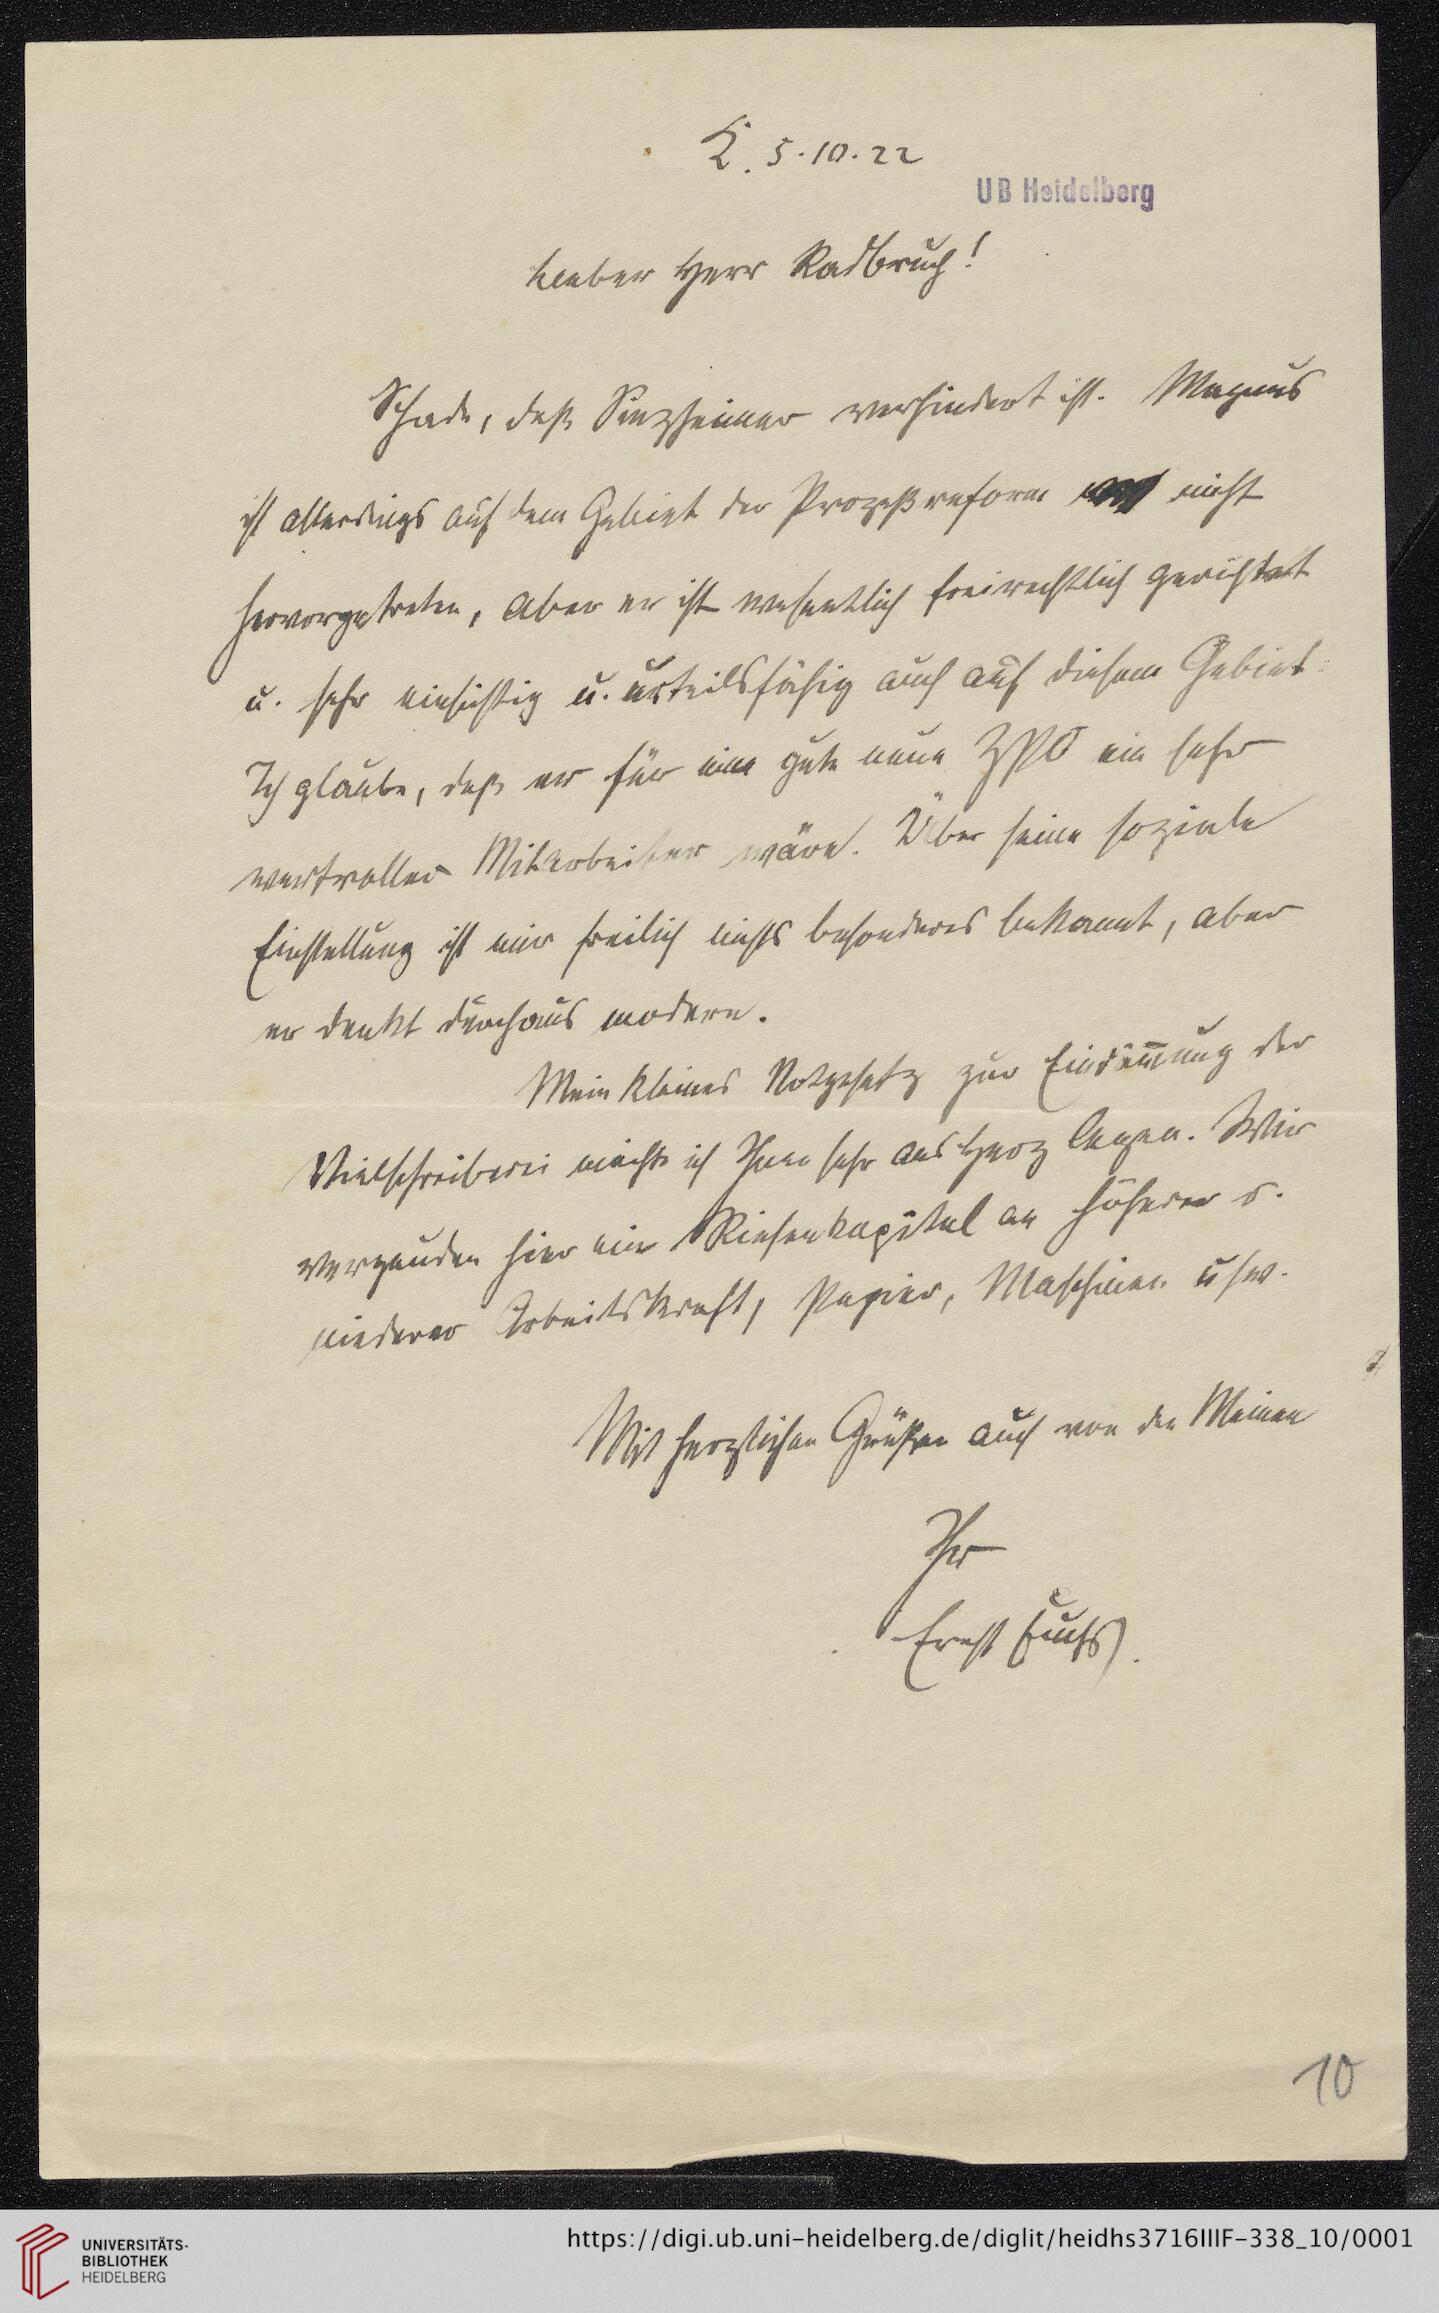 K. 5.10.22
UB Heidelberg
Lieber Herr Radbruch!
Schade, daß Sinzheimer verhindert ist. Magnus
ist allerdings auf dem Gebiet der Prozeßreform nicht
hervorgetreten, aber er ist wesentlich freirechtlich gerichtet
u. sehr einsichtig u. urteilsfähig auch auf diesem Gebiet.
Ich glaube, daß er für eine gute neue ZPO ein sehr
wertvoller Mitarbeiter wäre. Über seine soziale
Einstellung ist mir freilich nichts besonderes bekannt, aber
er denkt durchaus modern.
Mein kleines Notgesetz zur Eindämmung der
Vielschreiberei möchte ich Ihnen sehr ans Herz legen. Wir
vergeuden hier ein Riesenkapital an höherer u.
niederer Arbeitskraft, Papier, Maschinen usw.
Mit herzlichen Grüßen auch von den Meinen
Ihr
Ernst Fuchs.
10
UNIVERSITÄTS-
BIBLIOTHEK
HEIDELBERG
https://digi.ub.uni-heidelberg.de/diglit/heidhs3716IIIF-338_10/0001